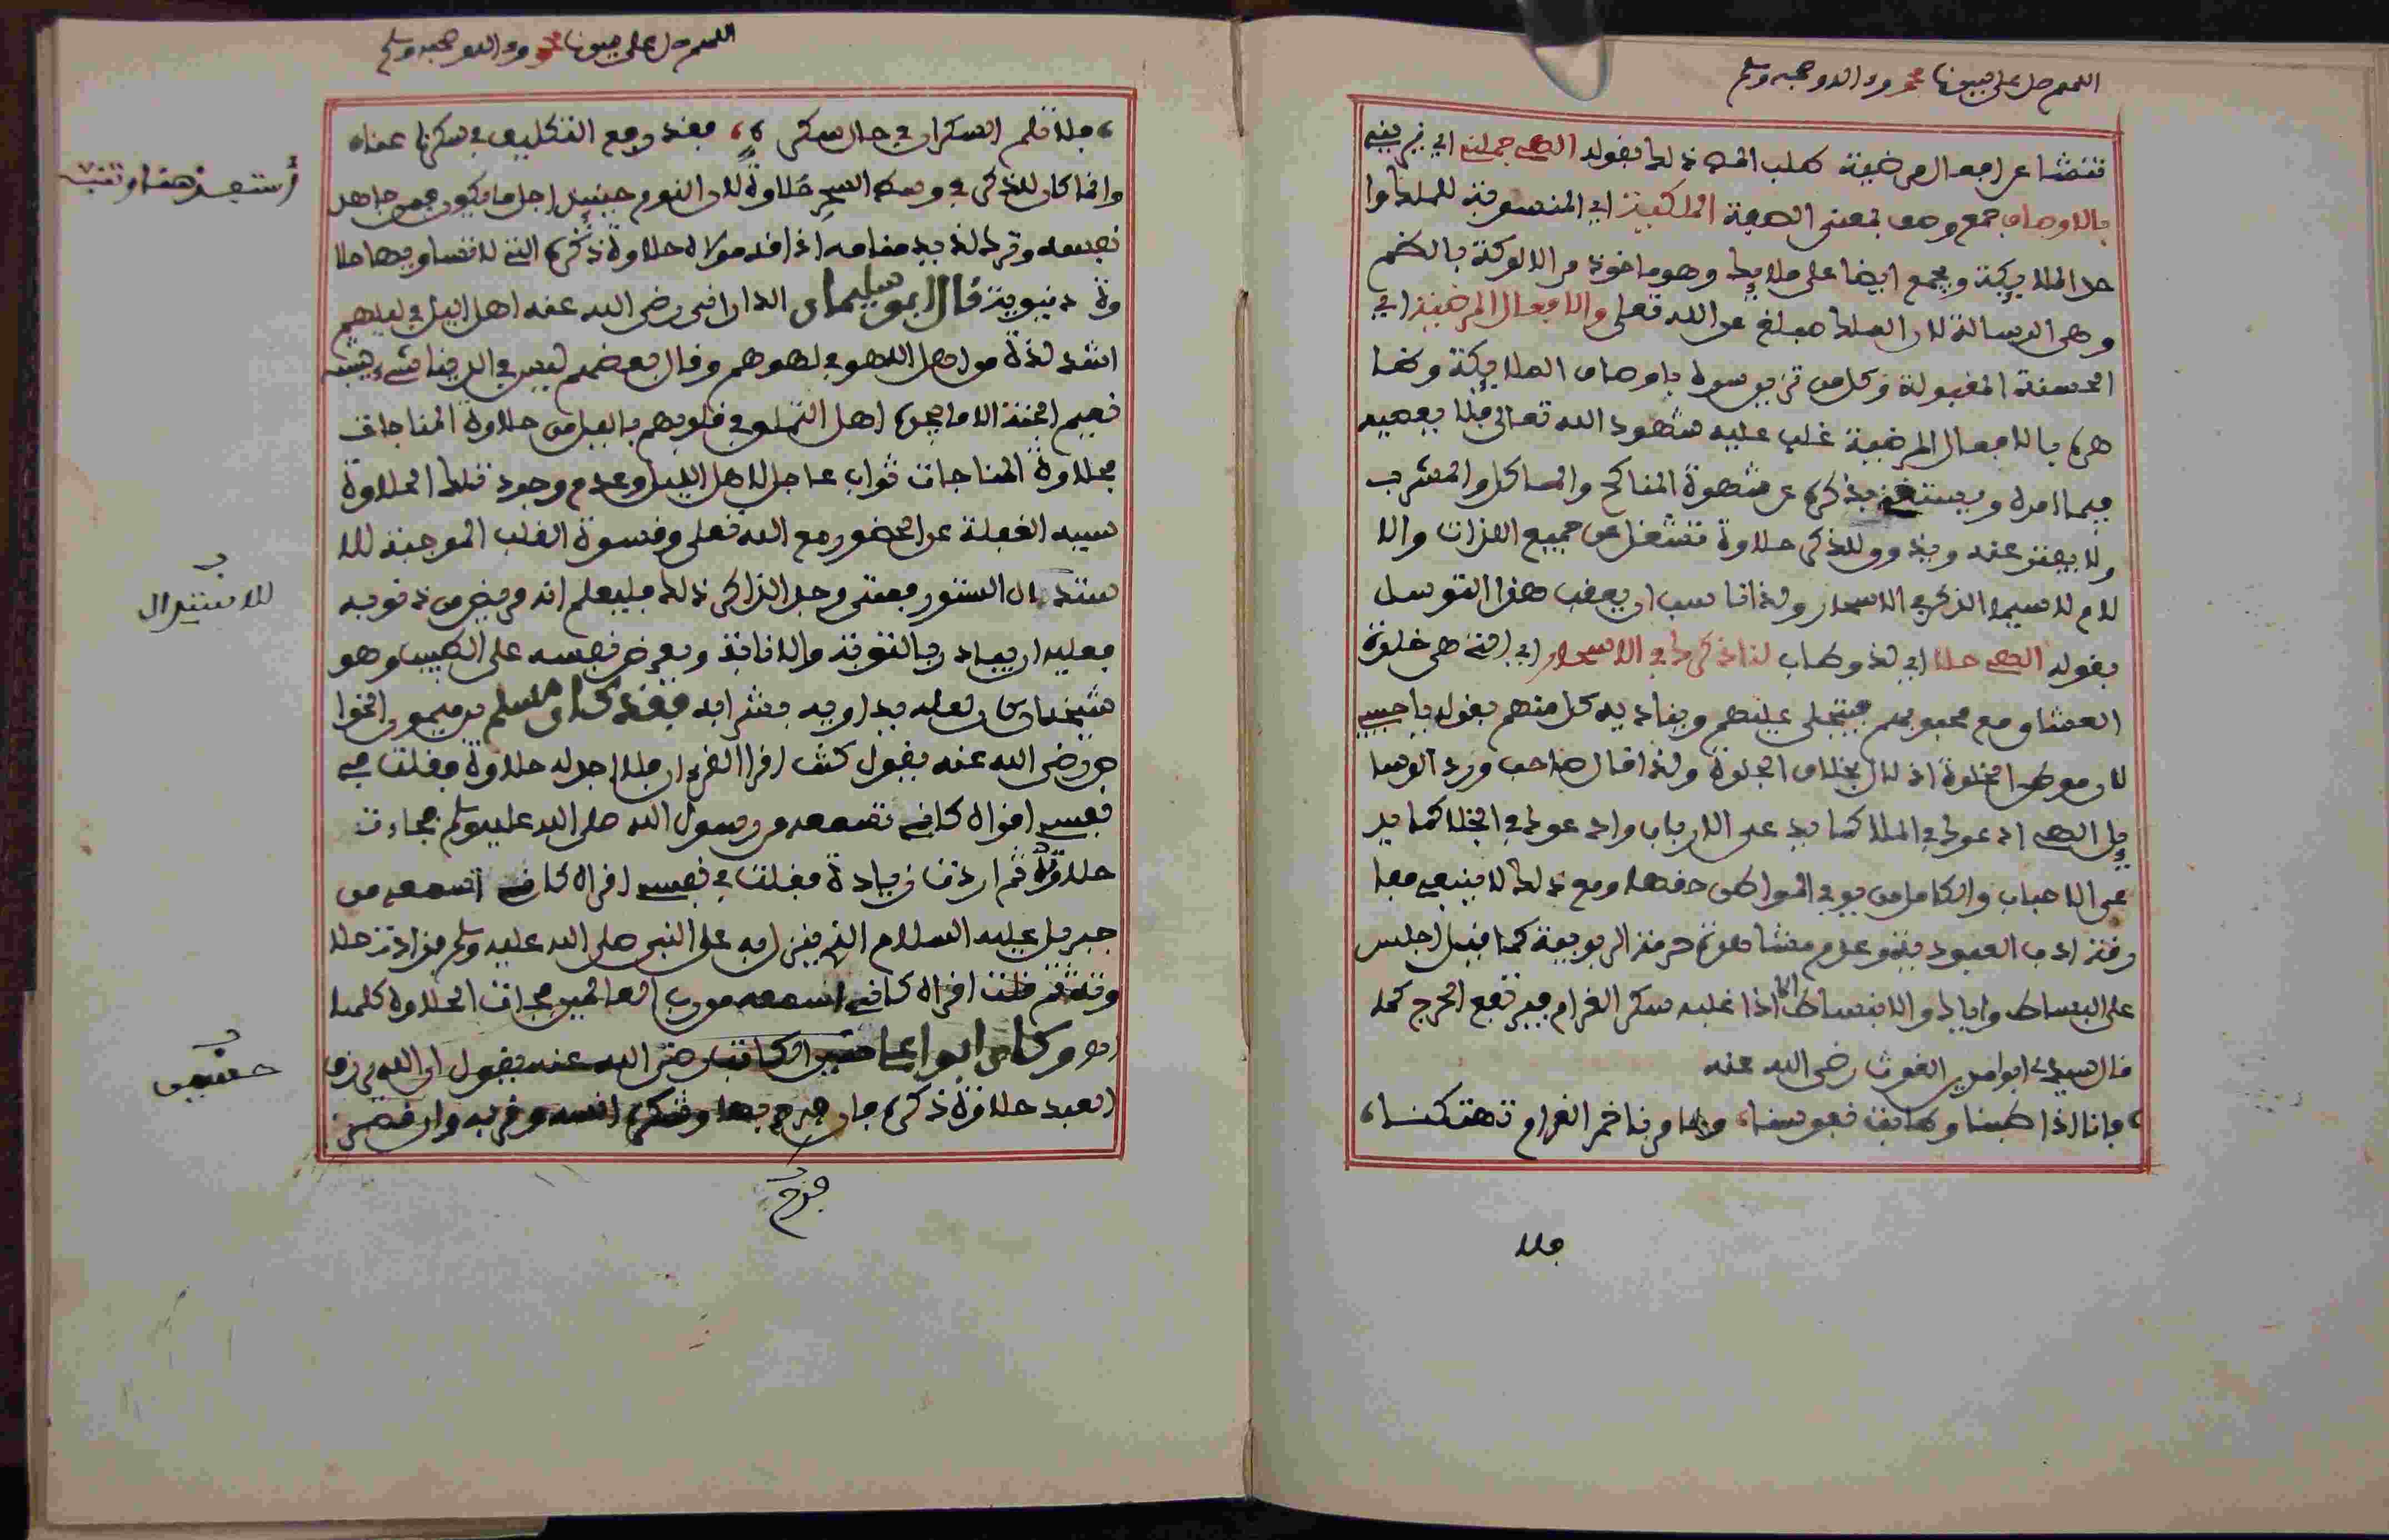 اللهم صل على نبينا محمد واله وصحبه وسلم
تنشا عن افعال مرضية طلب المص ذلك بقوله الهي جملني اي زيني
بالاوصاف جمع وصف بمعنى الصفة الملكية اي المنسوبة للملك وا
حد الملايكة ويجمع ايضا على ملايك وهو ماخوذ من الالوكة بالضم
وهي الرسالة لان الملك مبلغ عن الله تعلى والافعال المرضية اي
الحسنة المقبولة وكل من تزين سره باوصاف الملايكة وظا
هره بالافعال المرضية غلب عليه شهود الله تعالى فلا يعصيه
فيما امره ويستغني بذكره عن شهوة المناكح والماكل والمشرب
ولا يفتر عنه ويذوق للذكر حلاوة تشغل عن جميع اللذات والا
لام لا سيما الذكر في الاسحار ولذا ناسب ان يعقب هذا التوسل
بقوله الهي حلا اي لذ وطاب لنا ذكرك في الاسحار اي التي هي خلوة
العشاق مع محبوبهم فيتجلى عليهم ويناديه كل منهم بقوله يا حبيبي
لان موطن الخلوة اذلال بخلاف الجلوة ولذا قال صاحب ورد الوسا
يل الهي ادعوك في الملا كما يدعى الارباب وادعوك في الخلا كما يد
عى الاحباب والكامل من يوفي المواطن حقها ومع ذلك لا ينبغي مفا
رقة ادب العبودية وعدم مشاهدة حرمة الربوبية كما قيل اجلس
على البساط واياك والانبساط الا اذا غلبه سكر الغرام فيرتفع الحرج كما
قال سيدي ابو مدين الغوث رضي الله عنه
فانا اذا طبنا وطابت نفوسنا، وخامرنا خمر الغرام تهتكنا،
فلا
اللهم صل على نبينا محمد واله وصحبه وسلم
فلا تلم السكران في حال سكره، فقد رفع التكليف في سكرنا عنا
وانما كان للذكر في وسط السحر حلاوة لان النوم حينيذ اجل ما يكون فمن جاهد
نفسه وترك لذيذ منامه اذاقه مولاه حلاوة ذكره التي لا تساويها حلا
وة دنيوية قال ابو سليمان الداراني رضي الله عنه اهل اليل في ليلهم
اشد لذة من اهل اللهو في لهوهم وقال بعضهم ليس في الدنيا شيء يشبه
نعيم الجنة الا ما يجده اهل التملق في قلوبهم باليل من حلاوة المناجات
فحلاوة المناجات ثواب عاجل لاهل الليل وعدم وجود تلك الحلاوة
سببه الغفلة عن الحضور مع الله تعلى وقسوة القلب الموجبة للا
ستدال الستور فمتى وجد الذاكر ذلك فليعلم انه مريض من ذنوبه
فعليه ان يبادر بالتوبة والانابة ويعرض نفسه على الطبيب وهو
شيخه لعله يداويه بشرابه فقد كان مسلم بن ميمون الخوا
ص رضي الله عنه يقول كنت اقرا القرءان فلا اجد له حلاوة فقلت في
نفسي اقراه كاني تسمعه من رسول الله صلى الله عليه وسلم فجاءت
حلاوة ثم اردت زيادة فقلت في نفسي اقراه كاني اسمعه من
جبريل عليه السلام الذي ينزل به على النبي صلى الله عليه وسلم فزادت حلا
وته ثم قلت اقراه كاني اسمعه من رب العالمين فجات الحلاوة كلها
وكان ابو الكاتب رضي الله عنه يقول ان الله يرزق
العبد حلاوة ذكره فان فرح بها وشكره انسه وقربه وان قصر
فزح
استعذ هنا وتنبه
للاستبدال
حنبش